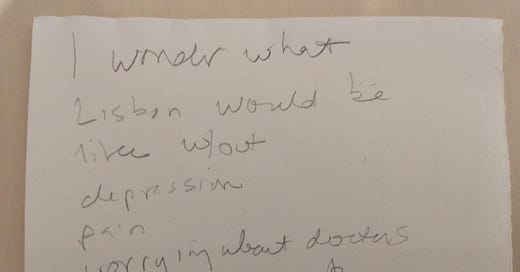 I wonder what
Lisbon would be
like w/out
depression
pain
worrying about doctors